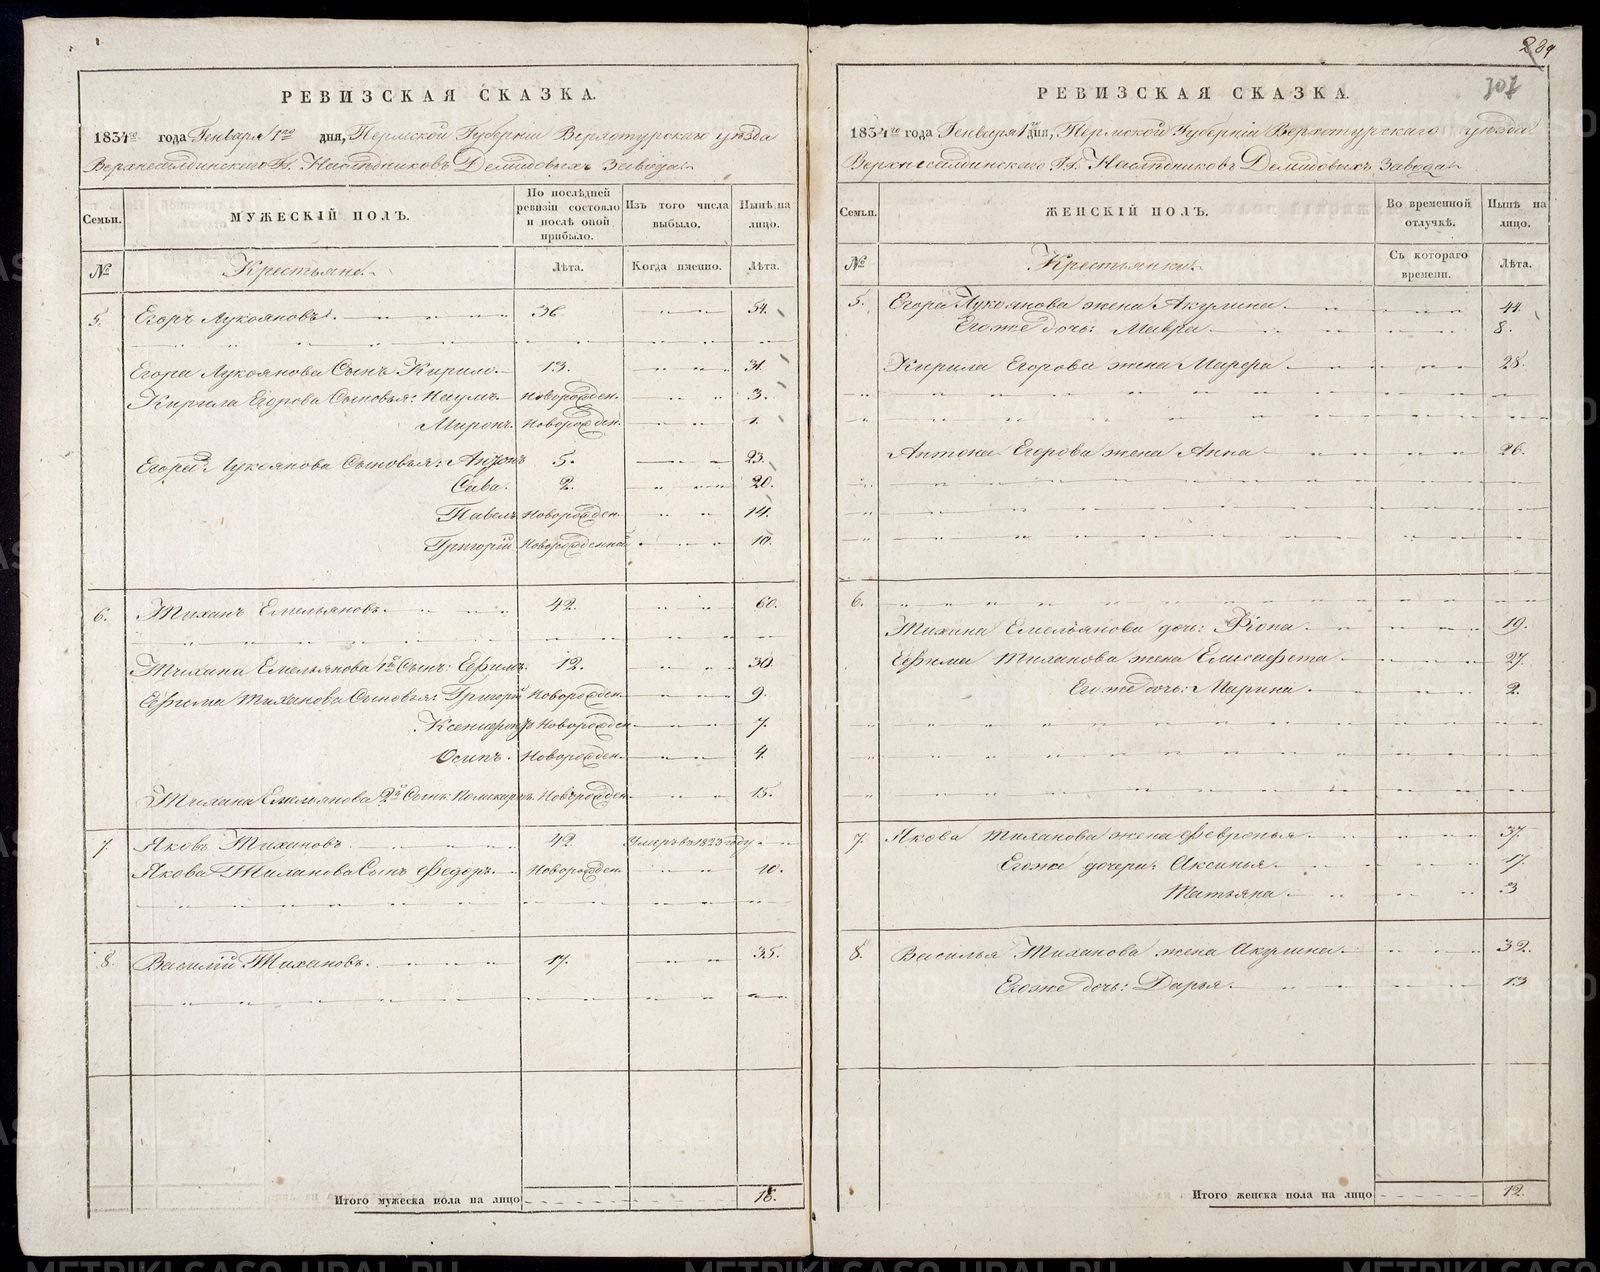 289
307
РЕВИЗСКАЯ СКАЗКА.
1834го года Генваря 1го дня, Пермской Губерніи Верхотурскаго уѣзда
Верхнесалдинскаго Гг. Наслѣдниковъ Демидовыхъ Завода
Семьи. МУЖЕСКІЙ ПОЛЪ. По послѣдней ревизіи состояло и послѣ оной прибыло. Изъ того числа выбыло. Нынѣ на лицо.
№ Крестьяне. Лѣта. Когда именно. Лѣта.
5. Егоръ Лукояновъ. 36 54.
Егора Лукоянова Сынъ Кирило. 13. 31.
Кирила Егорова Сыновья: Наумъ Новорожден. 3.
Миронъ. Новорожден. 1.
Егора Лукоянова Сыновья: Антонъ 5. 23.
Сава. 2. 20.
Павелъ Новорожден. 14.
Григорій Новорожденной 10.
6. Тиханъ Емельяновъ. 42. 60.
Тихана Емельянова 1й Сынъ: Ефимъ. 12. 30.
Ефима Тиханова Сыновья: Григорій Новорожден. 9.
Ксенифонтъ Новорожден 7.
Осипъ. Новорожден. 4.
Тихана Емельянова 2й Сынъ: Поликарпъ. Новорожден. 15.
7. Яковъ Тихановъ. 42. Умеръ въ 1823 году
Якова Тиханова Сынъ Федоръ. Новорожден. 10.
8. Василій Тихановъ. 17. 35.
Итого мужеска пола на лицо 18.
РЕВИЗСКАЯ СКАЗКА.
1834го года Генваря 1го дня, Пермской Губерніи Верхотурскаго уѣзда
Верхнесалдинскаго Гг. Наслѣдниковъ Демидовыхъ Завода
Семьи. ЖЕНСКІЙ ПОЛЪ. Во временной отлучкѣ. Нынѣ на лицо.
№ Крестьянки. Съ котораго времени. Лѣта.
5. Егора Лукоянова жена Акулина. 44.
Его же дочь: Мавра. 8.
Кирила Егорова жена Марфа 28.
Антона Егорова жена Анна 26.
6.
Тихана Емельянова дочь: Фіона. 19.
Ефима Тиханова жена Елисафета 27.
Его же дочь: Марина. 2.
7. Якова Тиханова жена Февронья. 37.
Его же дочери: Аксинья. 17
Татьяна 3
8. Василья Тиханова жена Акулина. 32.
Его же дочь: Дарья. 13
Итого женска пола на лицо 12.
METRIKI.GASO-URAL.RU